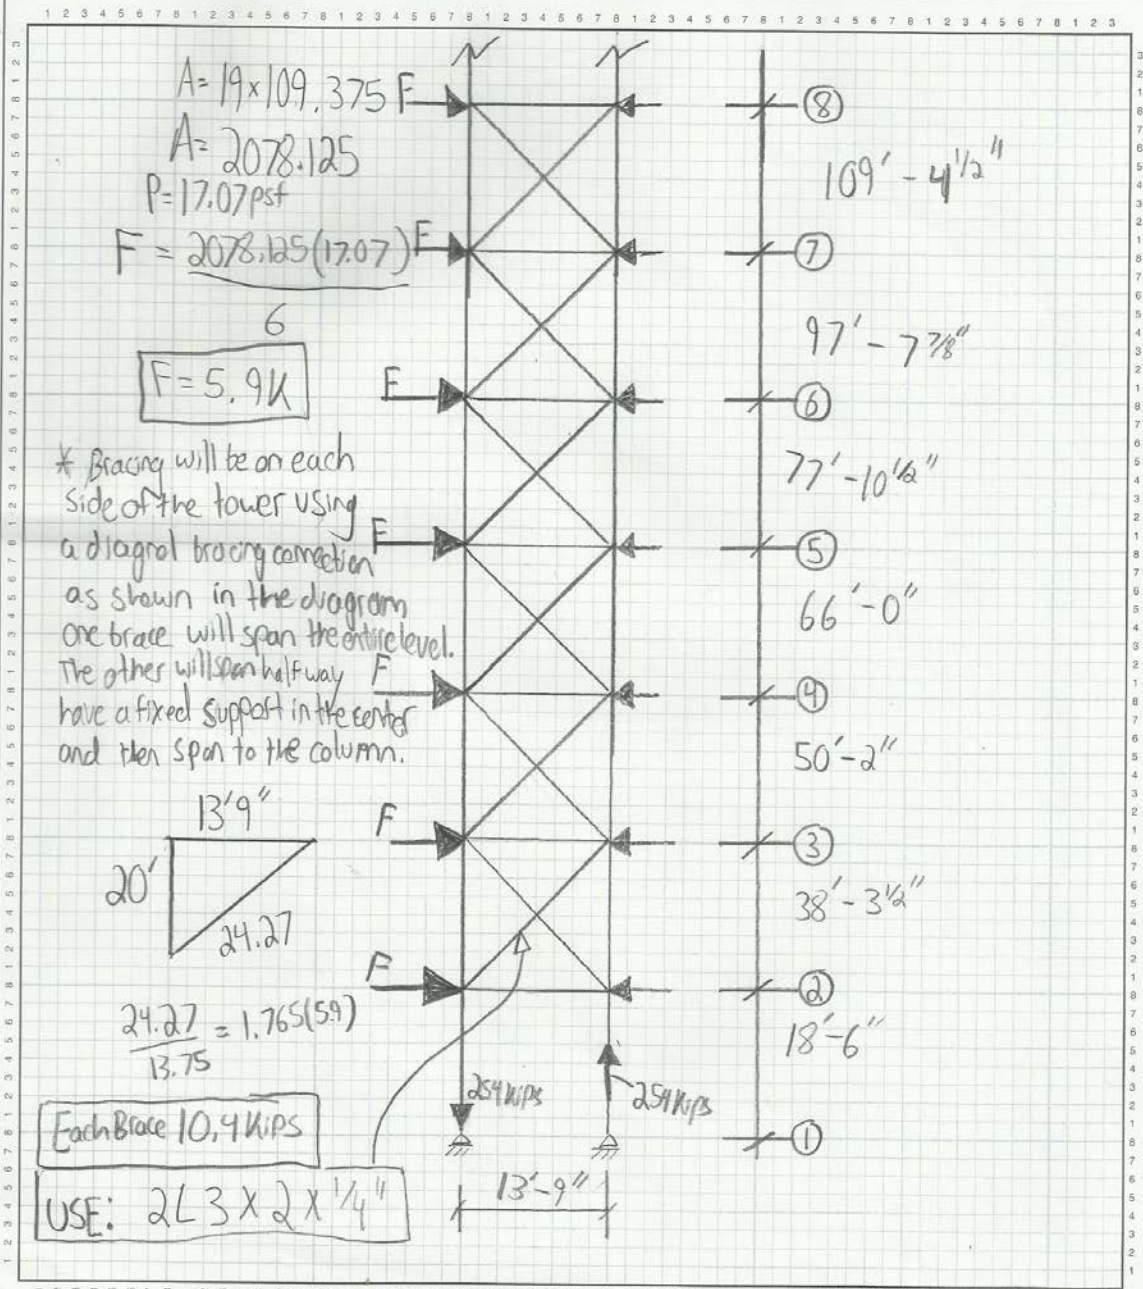 A= 19x109.375
A= 2078.125
P=17.07psf
F = 2078.125(17.07)
6
F=5.9K
* Bracing will be on each
side of the tower using
a diagnol bracing connection
as shown in the diagram
one brace will span the entire level.
The other will span halfway
have a fixed support in the center
and then span to the column.
13'9"
20'
24.27
24.27 = 1.765(5.9)
13.75
Each Brace 10.4 Kips
USE: 2L 3 X 2 X 1/4"
F
F
F
F
F
F
F
254 Kips
254 Kips
13'-9"
8
109' - 4 1/2"
7
97' - 7 7/8"
6
77' - 10 1/2"
5
66' - 0"
4
50' - 2"
3
38' - 3 1/2"
2
18' - 6"
1